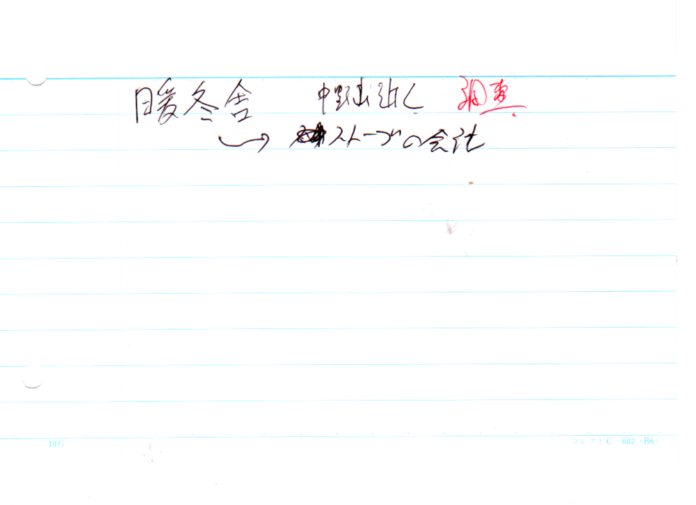 暖冬舎 中野山近く 調査
→ ストーブの会社